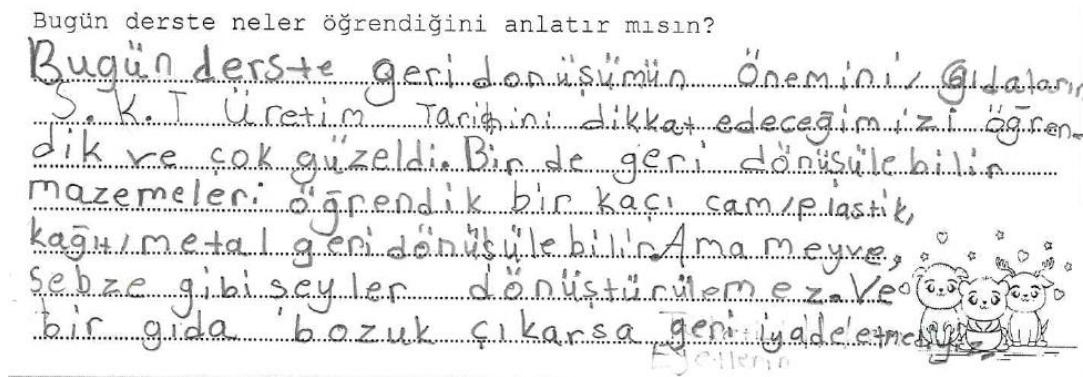 Bugün derste neler öğrendiğini anlatır mısın?
Bugün derste geri donüşümün Önemini, Gıdaların
S. K. T Üretim Tarihini dikkat edeceğimizi öğren-
dik ve çok güzeldi. Bir de geri dönüşüle bilir
mazemeleri öğrendik bir kaçı cam, plastik,
kağıt, metal geri dönüşüle bilir. Ama meyve,
sebze gibi şeyler dönüştürülemez. Ve
bir gıda bozuk çıkarsa geri iyade etmeliyiz.